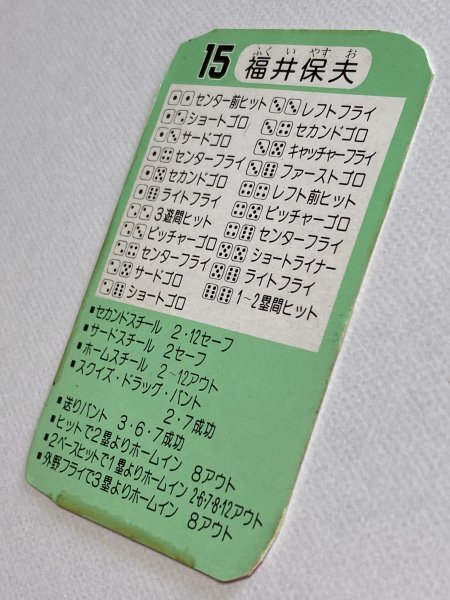 15
ふく い やす お
福井保夫
センター前ヒット
ショートゴロ
サードゴロ
センターフライ
セカンドゴロ
ライトフライ
3遊間ヒット
ピッチャーゴロ
センターフライ
サードゴロ
ショートゴロ
レフトフライ
セカンドゴロ
キャッチャーフライ
ファーストゴロ
レフト前ヒット
ピッチャーゴロ
センターフライ
ショートライナー
ライトフライ
1〜2塁間ヒット
■セカンドスチール 2・12セーフ
■サードスチール 2セーフ
■ホームスチール 2〜12アウト
■スクイズ・ドラッグ・バント
2・7成功
■送りバント 3・6・7成功
■ヒットで2塁よりホームイン 8アウト
■2ベースヒットで1塁よりホームイン 2・6・7・8・12アウト
■外野フライで3塁よりホームイン
8アウト